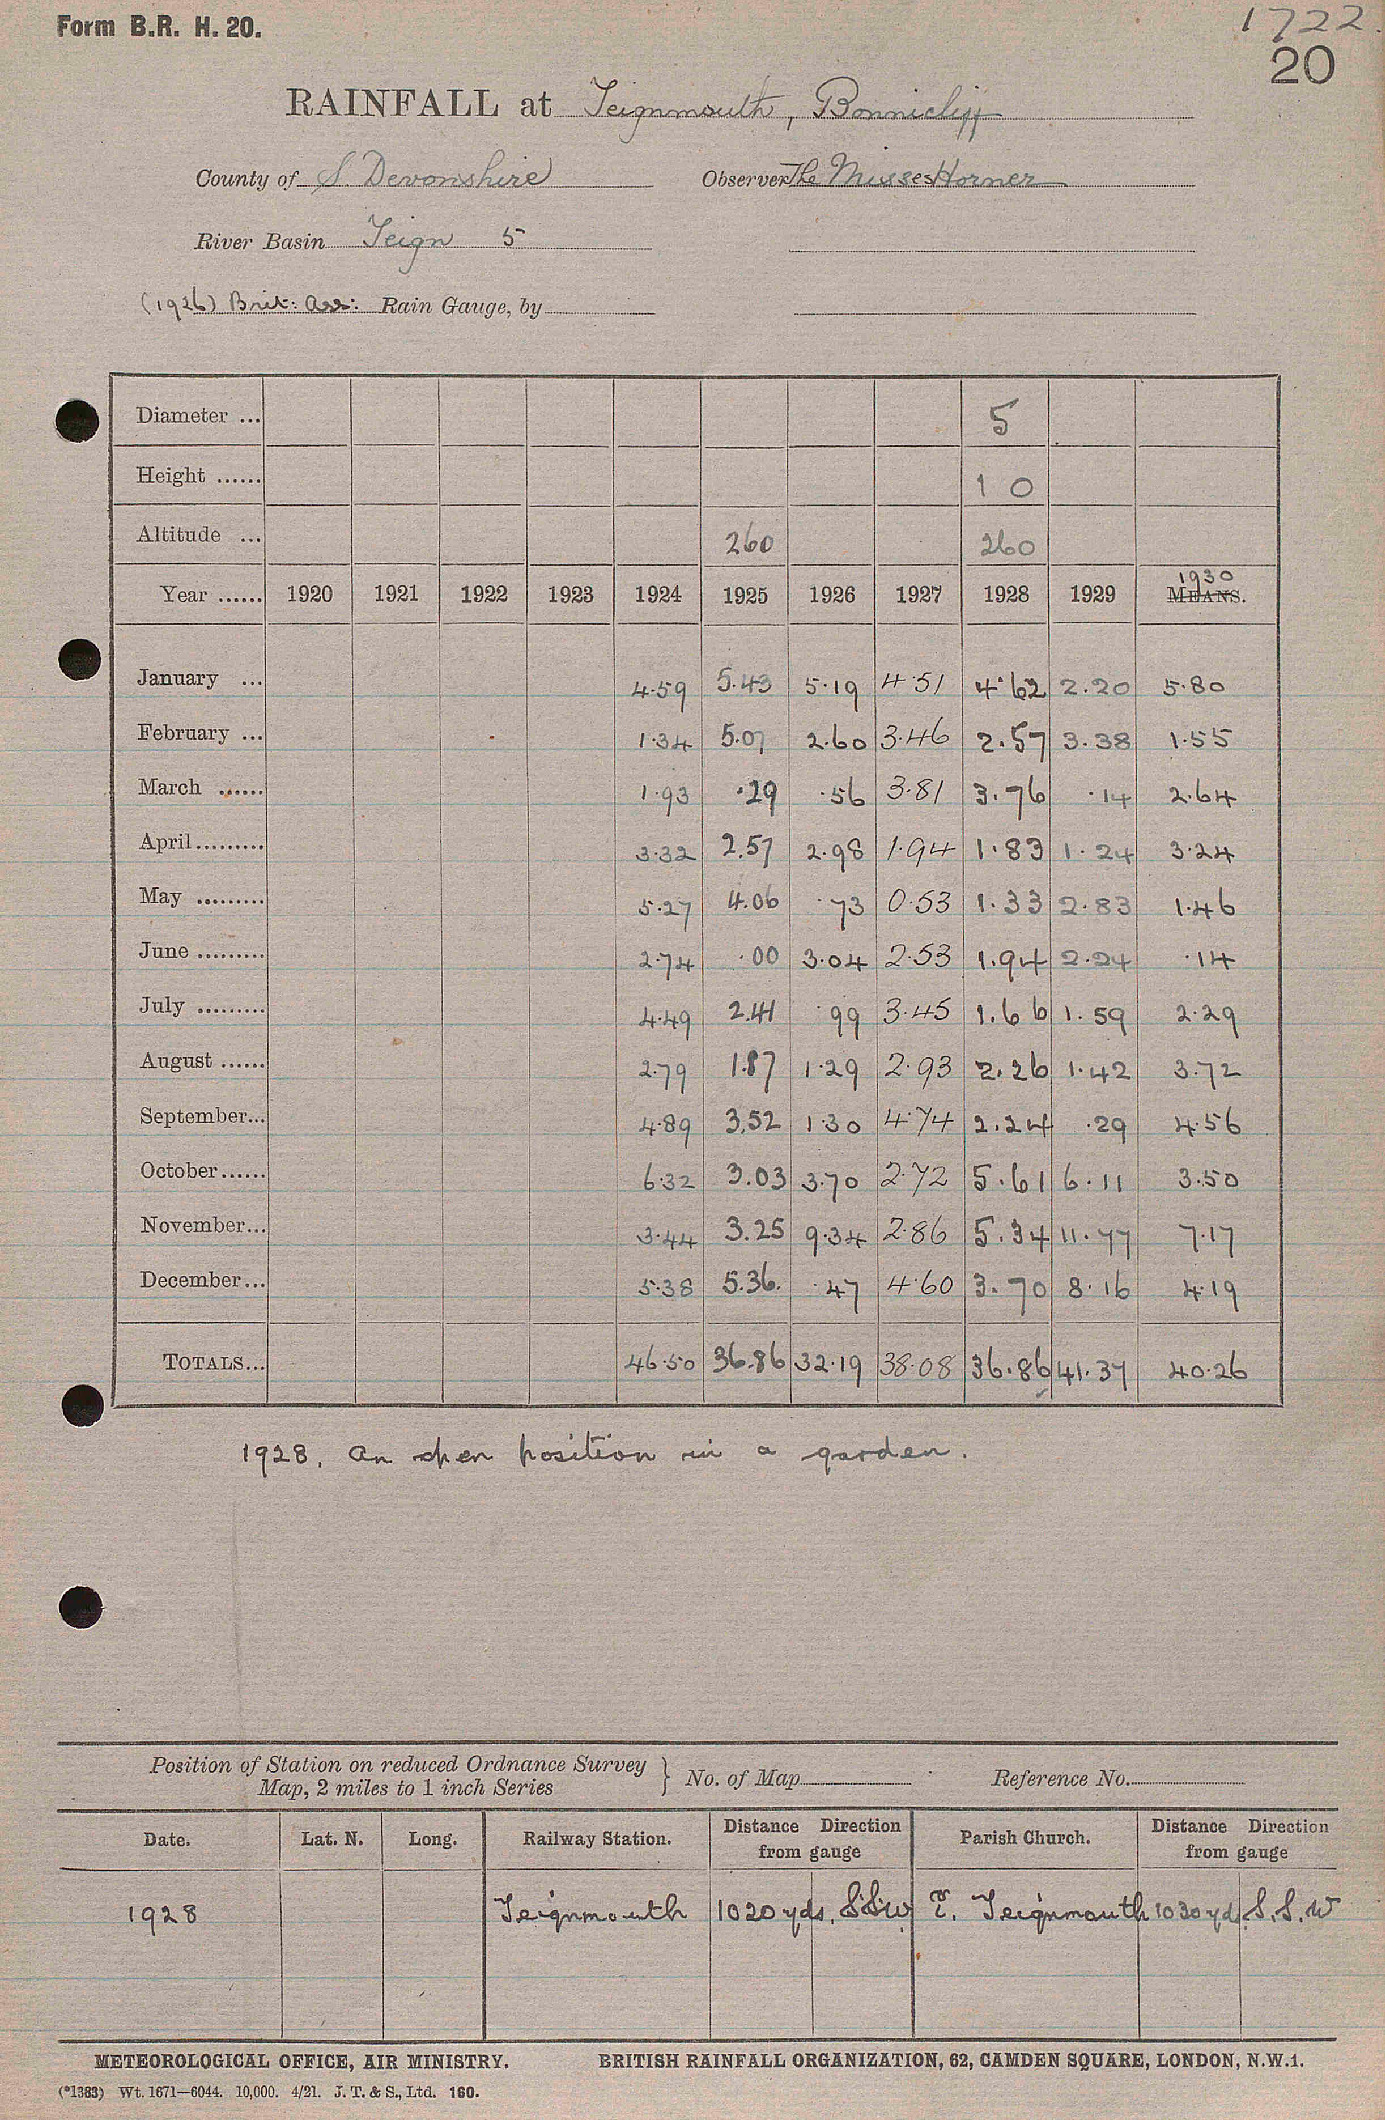 Form B.R. H. 20.
1722.
20
RAINFALL at Teignmouth, Bonnicliff
County of S. Devonshire Observer The Misses Horner
River Basin Teign 5
(1926) Brit: Ass: Rain Gauge, by
Diameter ... 5
Height ...... 1 0
Altitude ... 260 260
1930
Year ...... 1920 1921 1922 1923 1924 1925 1926 1927 1928 1929 MEANS.
January ... 4.59 5.43 5.19 4.51 4.62 2.20 5.80
February ... 1.34 5.07 2.60 3.46 2.57 3.38 1.55
March ...... 1.93 .29 .56 3.81 3.76 .14 2.64
April......... 3.32 2.57 2.98 1.94 1.83 1.24 3.24
May ......... 5.27 4.06 .73 0.53 1.33 2.83 1.46
June ......... 2.74 .00 3.04 2.53 1.94 2.24 .14
July ......... 4.49 2.41 .99 3.45 1.66 1.59 2.29
August ...... 2.79 1.87 1.29 2.93 2.26 1.42 3.72
September... 4.89 3.52 1.30 4.74 2.24 .29 4.56
October...... 6.32 3.03 3.70 2.72 5.61 6.11 3.50
November... 3.44 3.25 9.34 2.86 5.34 11.77 7.17
December... 5.38 5.36. .47 4.60 3.70 8.16 4.19
TOTALS... 46.50 36.86 32.19 38.08 36.86 41.37 40.26
1928. An open position in a garden.
Position of Station on reduced Ordnance Survey
Map, 2 miles to 1 inch Series } No. of Map Reference No.
Date. Lat. N. Long. Railway Station. Distance Direction from gauge Parish Church. Distance Direction from gauge
1928 Teignmouth 1020 yds. SSW E. Teignmouth 1030 yd. S.S.W
METEOROLOGICAL OFFICE, AIR MINISTRY. BRITISH RAINFALL ORGANIZATION, 62, CAMDEN SQUARE, LONDON, N.W.1.
(*1383) Wt. 1671—6044. 10,000. 4/21. J. T. & S., Ltd. 160.